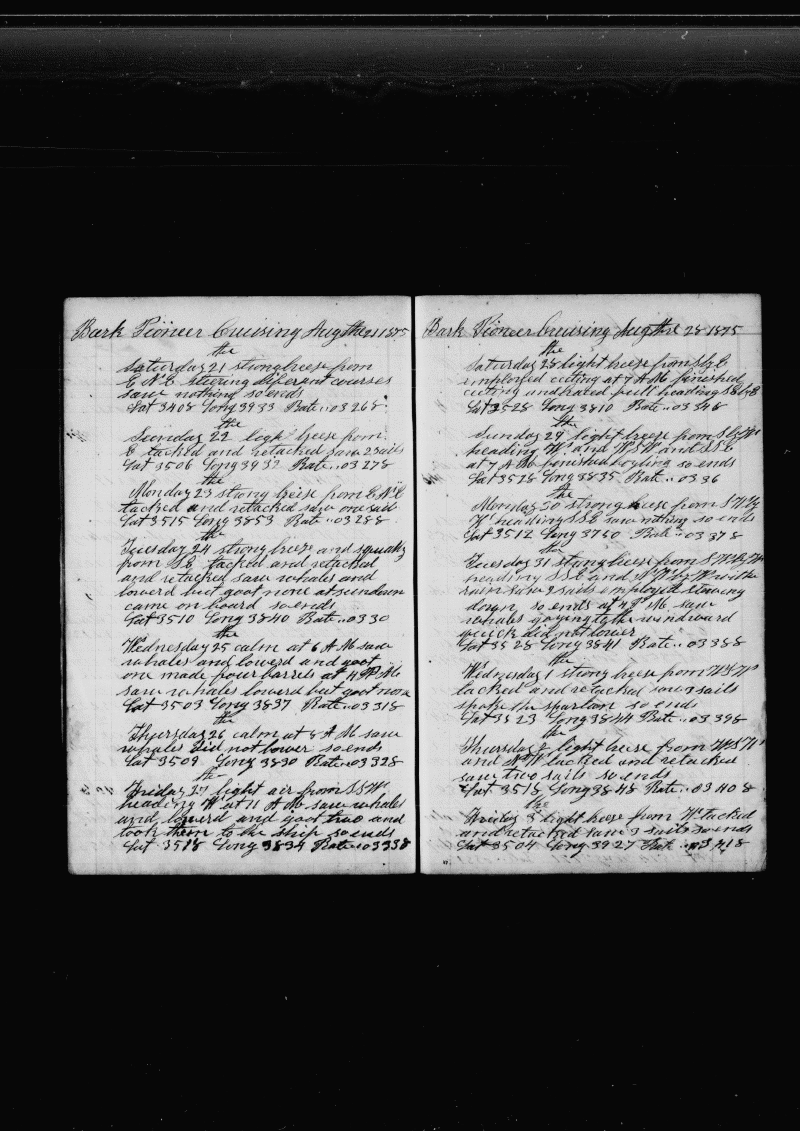 Bark Pioneer Cruising Aug the 21 1875
the
Saturday 21 strong breese from
E N E stering diferant courses
saw nothing so ends
Lat 3408 Long 3933 Rate .. 03 268
the
Sunday 22 light breese from
E tacked and retacked saw 2 sails
Lat 3506 Long 3932 Rate .. 03 278
the
Monday 23 strong breise from E N E
tacked and retacked saw one sail
Lat 3515 Long 3853 Rate .. 03 288
the
Tuesday 24 strong breese and squally
from S E tacked and retacked
and retacked saw whales and
lowerd but goot none at sundown
came on board so ends
Lat 3510 Long 3840 Rate .. 03 30
the
Wednesday 25 calm at 6 A M saw
whales and lowerd and goot
one made four barrels at 4 P M
saw whales lowerd but goot none
Lat 3503 Long 3837 Rate .. 03 318
the
Thursday 26 calm at 8 A M saw
whales did not lower so ends
Lat 3509 Long 3830 Rate .. 03 328
the
Friday 27 light air from S S W
heading W at 11 A M saw whales
and lowerd and goot two and
took them to the ship so ends
Lat 3518 Long 3834 Rate .. 03 338
Bark Pioneer Cruising Aug the 28 1875
the
Saturday 28 light breese from S by E
employed cuting at 7 A M finished
cuting and heading S E by E
Lat 3528 Long 3810 Rate .. 03 348
the
Sunday 29 light breese from S by W
heading W and W S W and S S E
at 7 A M finished boyling so ends
Lat 3528 Long 3835 Rate .. 03 36
the
Monday 30 strong breese from S W by
W heading S S E saw nothing so ends
Lat 3512 Long 3760 Rate .. 03 378
the
Tuesday 31 strong breese from S W by W
heading S S E and N W by W with
rain saw 3 sails employed stowing
down so ends at 4 P M saw
whales goying to the windward
quick did not lower
Lat 3528 Long 3841 Rate .. 03 388
the
Wednesday 1 strong breese from W S W
tacked and retacked saw 3 sails
spoke the spartan so ends
Lat 3523 Long 3844 Rate .. 03 398
the
Thursday 2 light breese from W S W
and N W tacked and retacked
saw two sails so ends
Lat 3518 Long 3848 Rate .. 03 408
the
Friday 3 light breese from W tacked
and retacked saw 3 sails so ends
Lat 3504 Long 3927 Rate .. 03 418